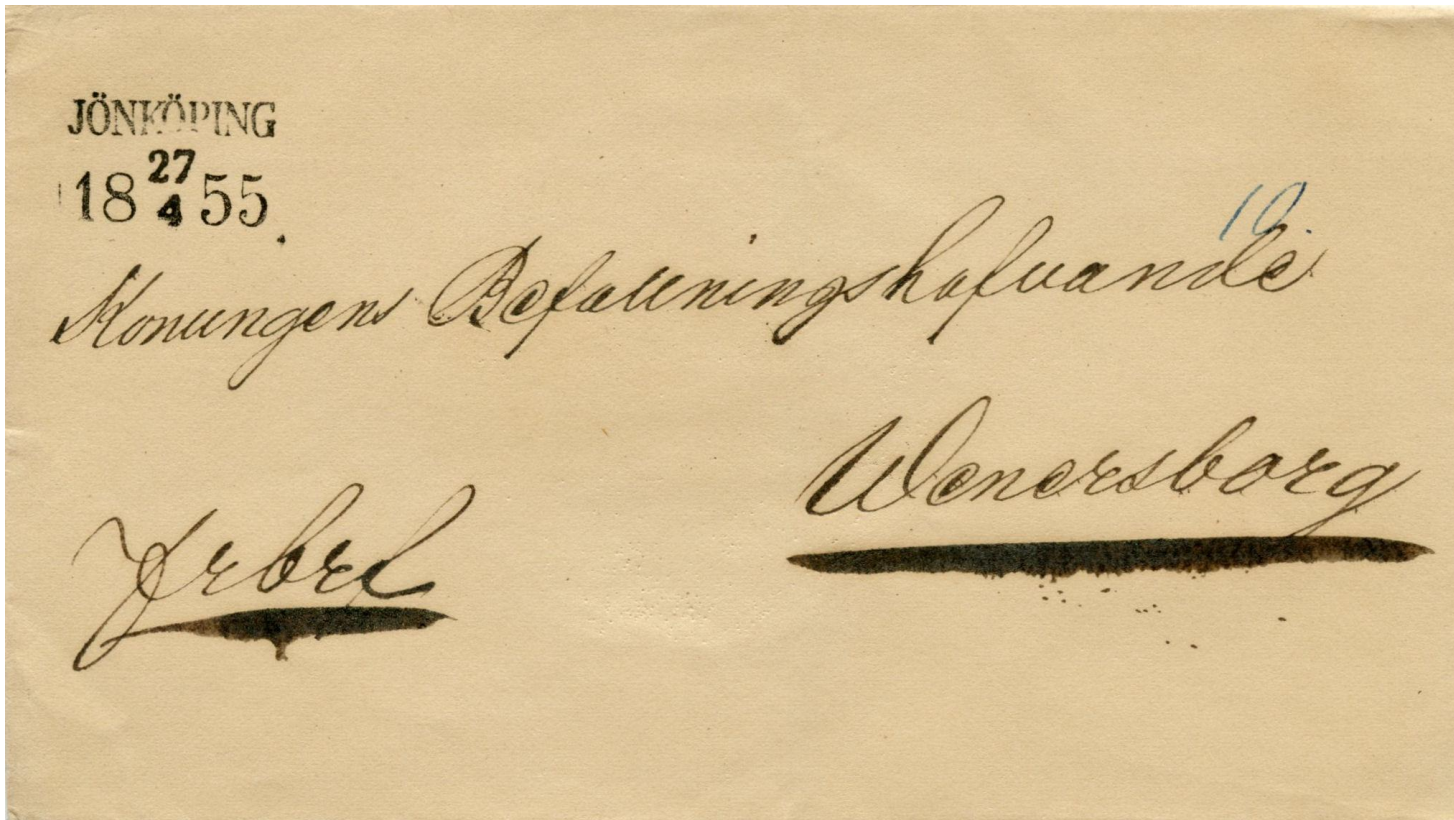 JÖNKÖPING
18 27/4 55
10.
Konungens Befallningshafvande
Wenersborg
Frbref